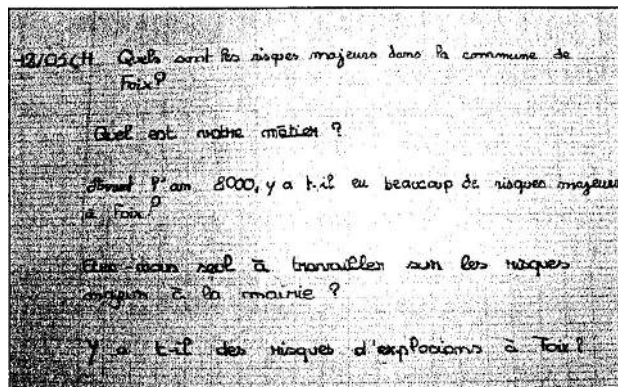 Quels sont les risques majeurs dans la commune de
Foix?
Quel est votre métier ?
Avant l'an 2000, y a t-il eu beaucoup de risques majeurs
à Foix?
seul à travailler sur les risques
majeurs à la mairie ?
Y a t-il des risques d'explosions à Foix?